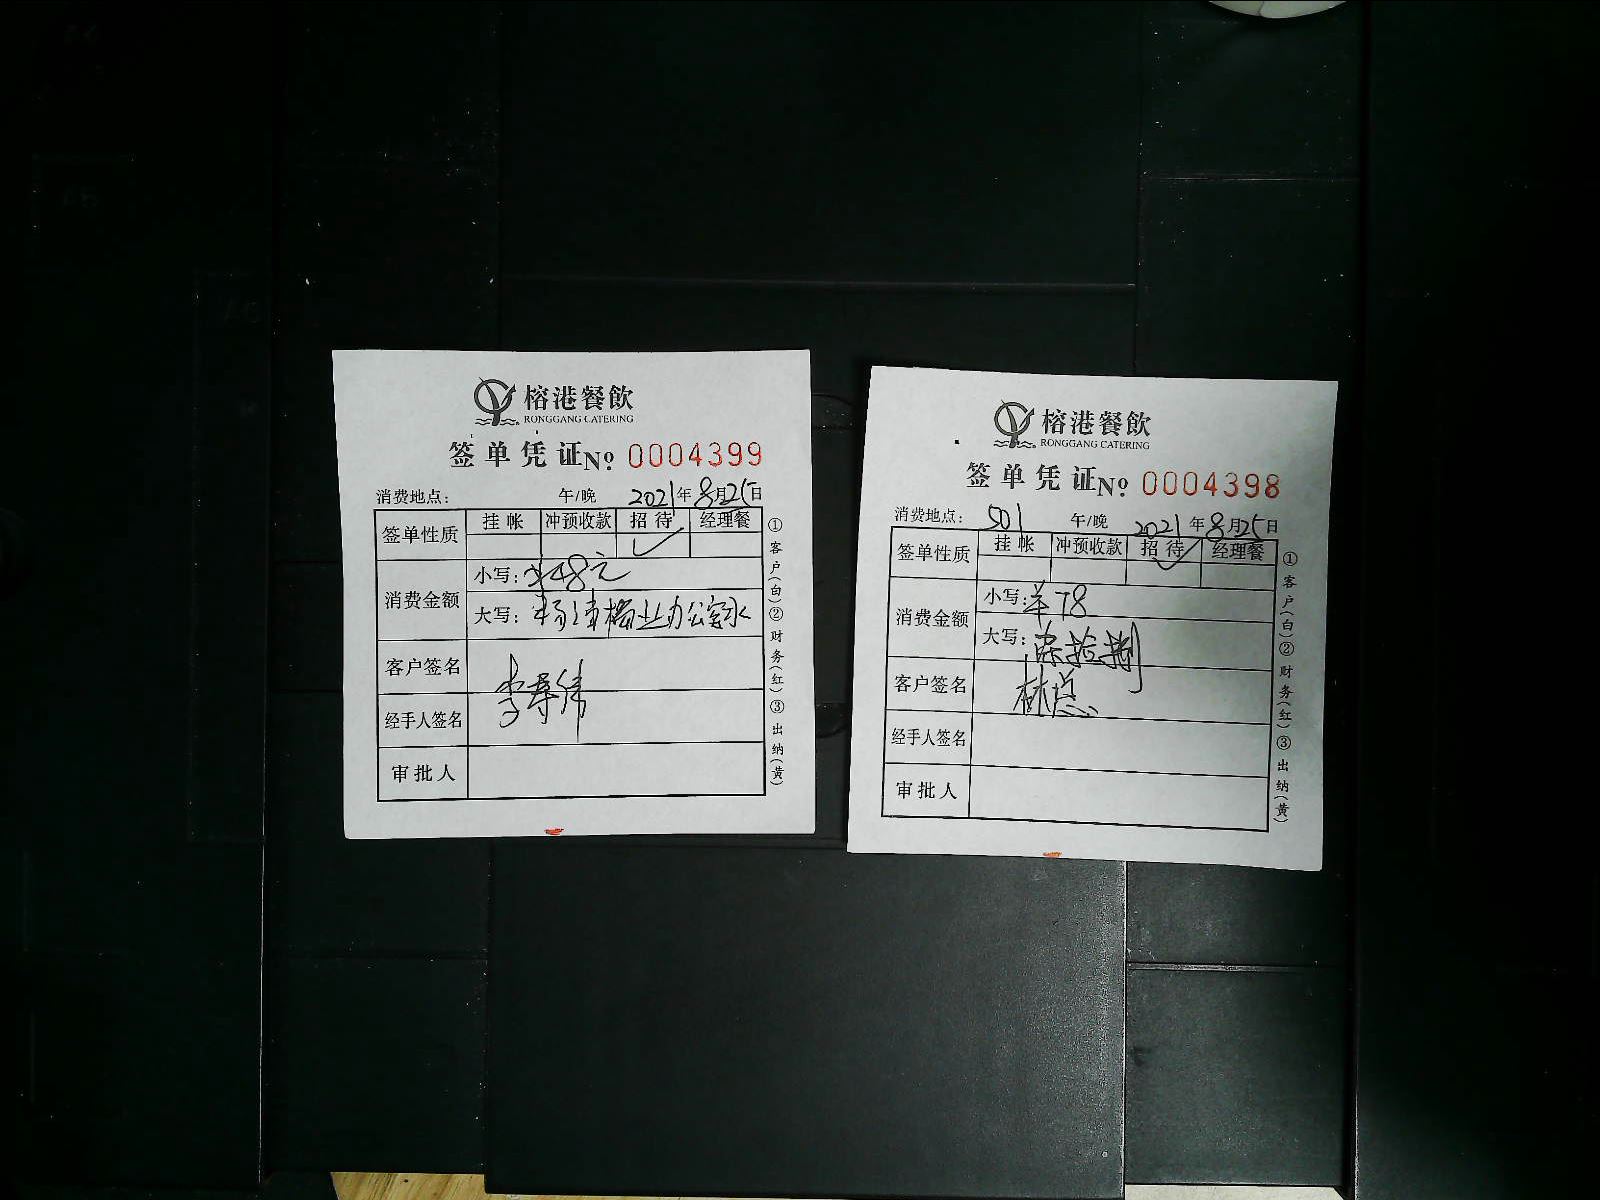 榕港餐飲
RONGGANG CATERING
签单凭证 № 0004399
消费地点: 午/晚 2021年8月25日
签单性质 挂帐 冲预收款 招待 经理餐
✓
消费金额 小写: ¥48元
大写: 办公室水
客户签名
李寿伟
经手人签名
审批人
①客户(白)②财务(红)③出纳(黄)
榕港餐飲
RONGGANG CATERING
签单凭证 № 0004398
消费地点: 501 午/晚 2021年8月25日
签单性质 挂帐 冲预收款 招待 经理餐
✓
消费金额 小写: 羊78
大写: 柒拾捌
客户签名 林总
经手人签名
审批人
①客户(白)②财务(红)③出纳(黄)